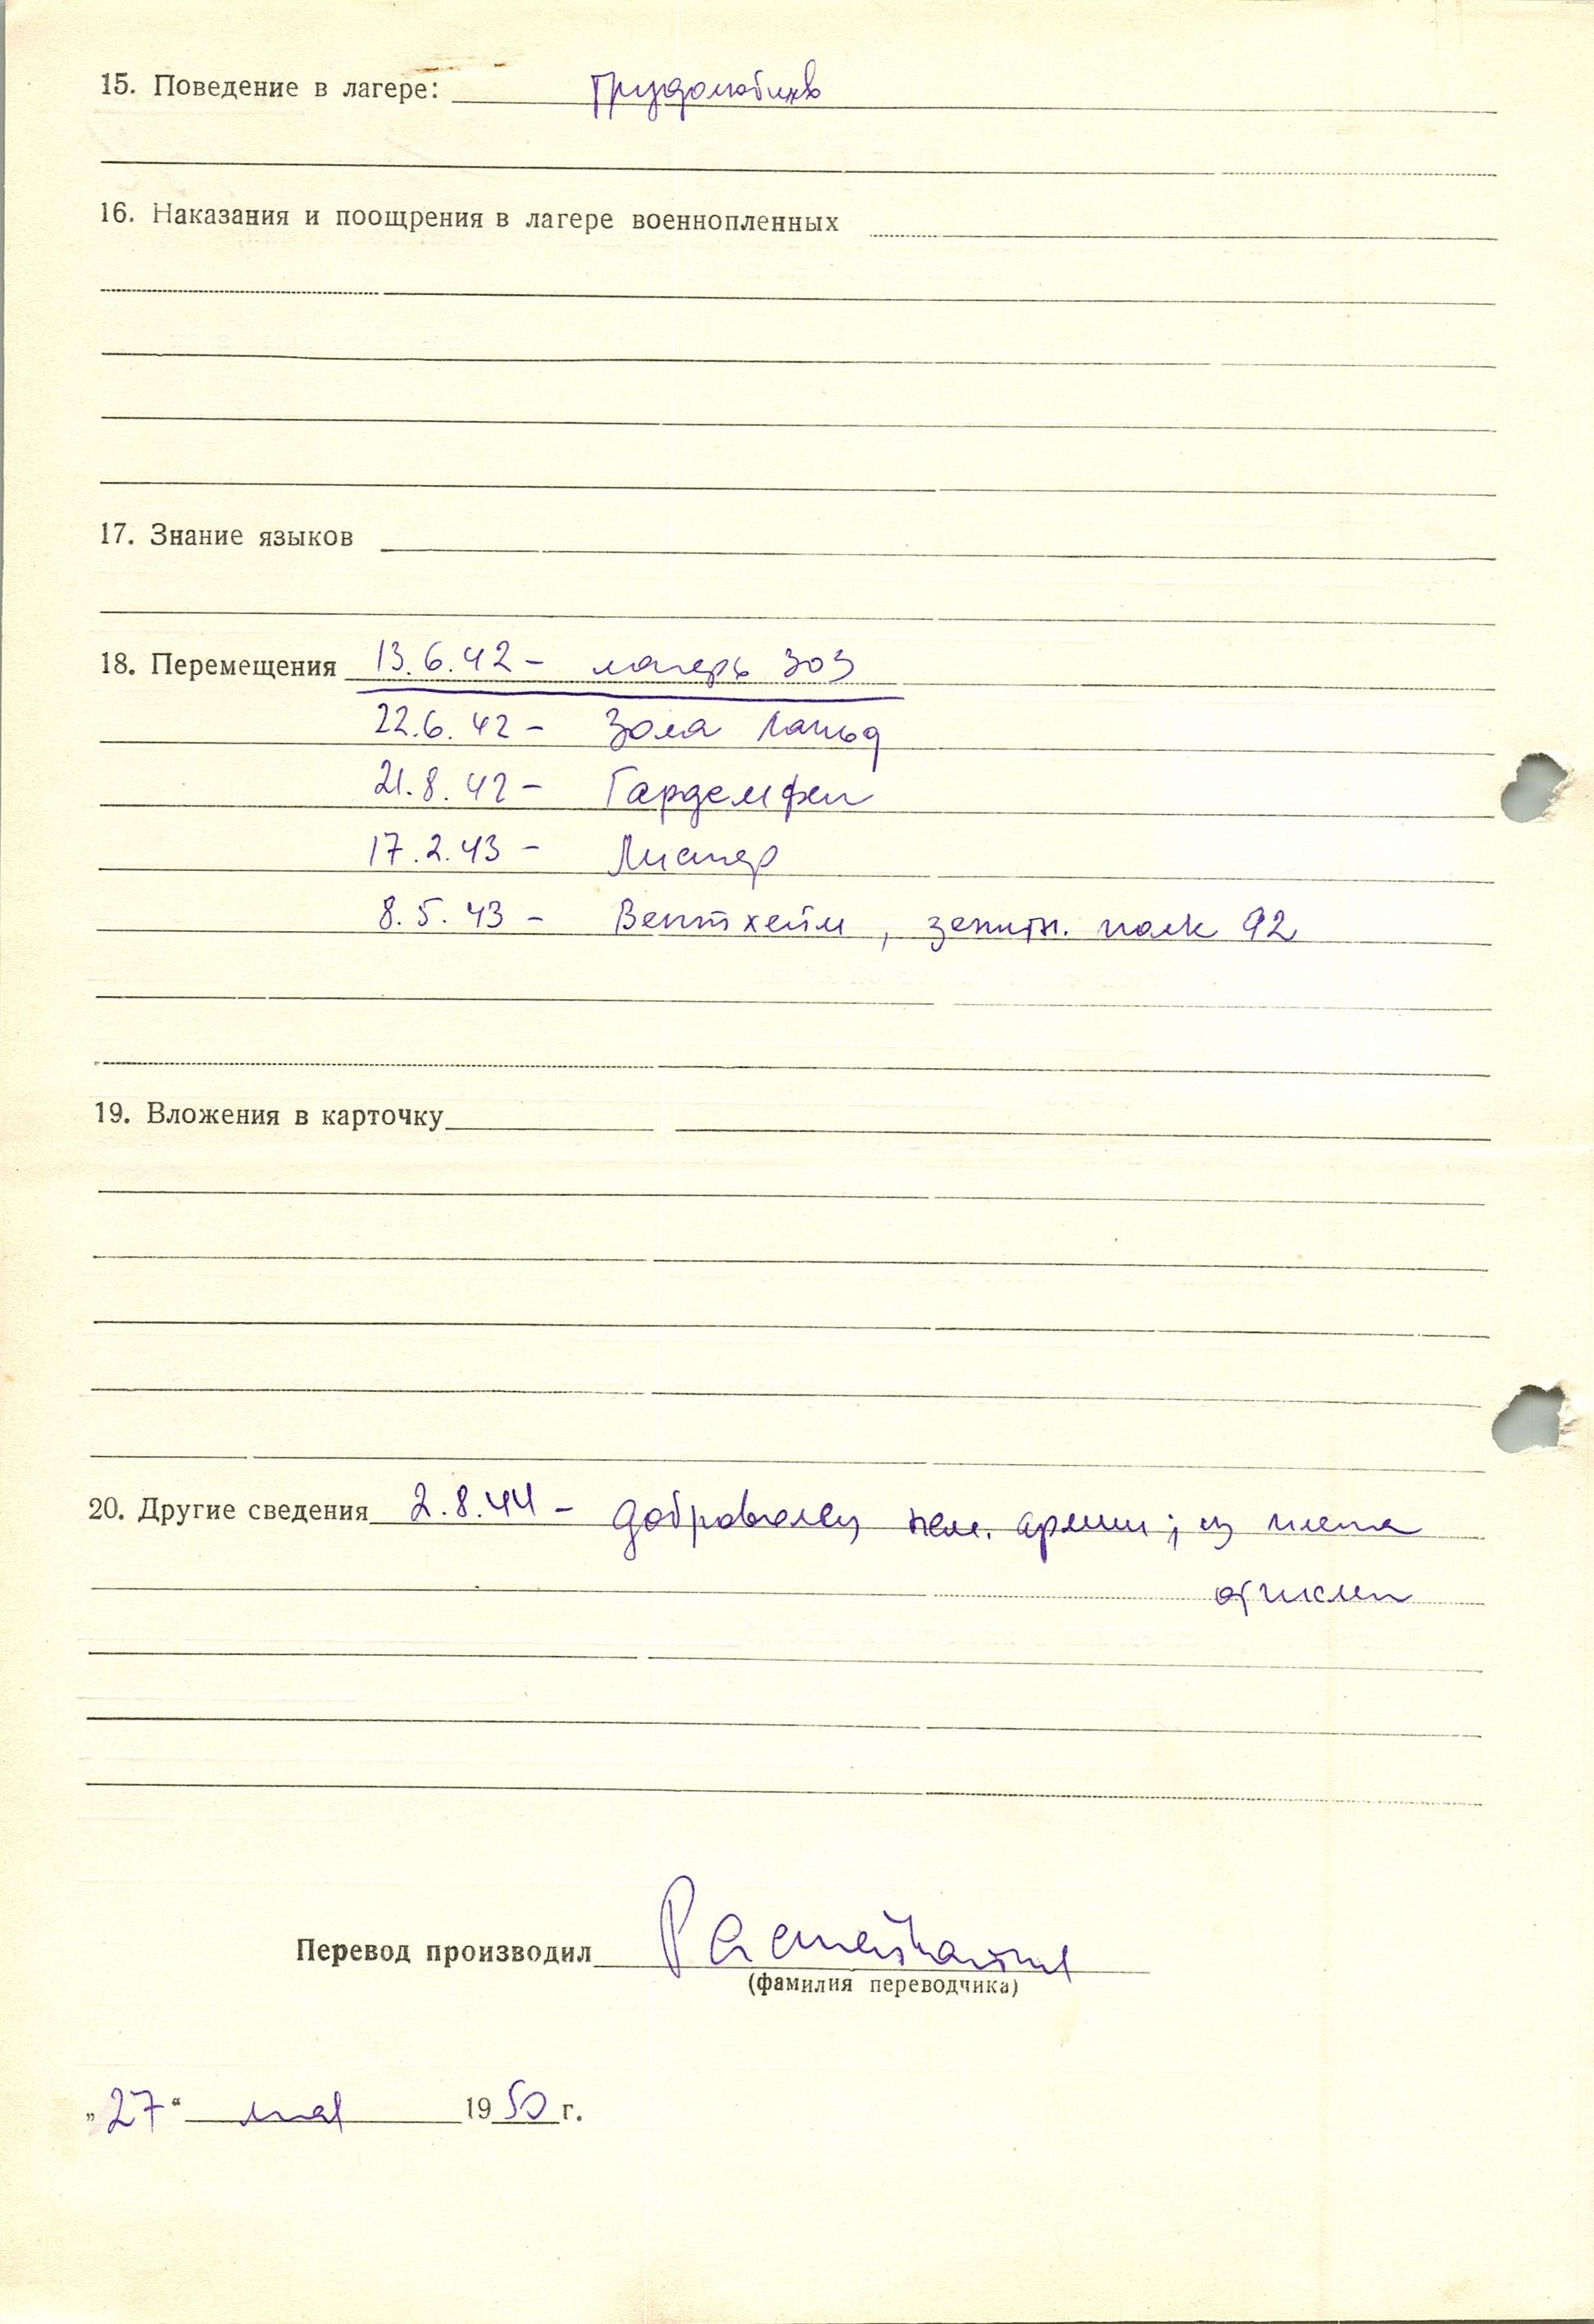 15. Поведение в лагере: Трудолюбив
16. Наказания и поощрения в лагере военнопленных
17. Знание языков
18. Перемещения 13.6.42 - лагерь 303
22.6.42 - Зола
21.8.42 -
17.2.43 - Листер
8.5.43 - Вентхейм, зенитн. полк 92
19. Вложения в карточку
20. Другие сведения 2.8.44 - доброволец нем. армии; из плена
отпущен
Перевод производил
(фамилия переводчика)
„27“ мая 1950 г.